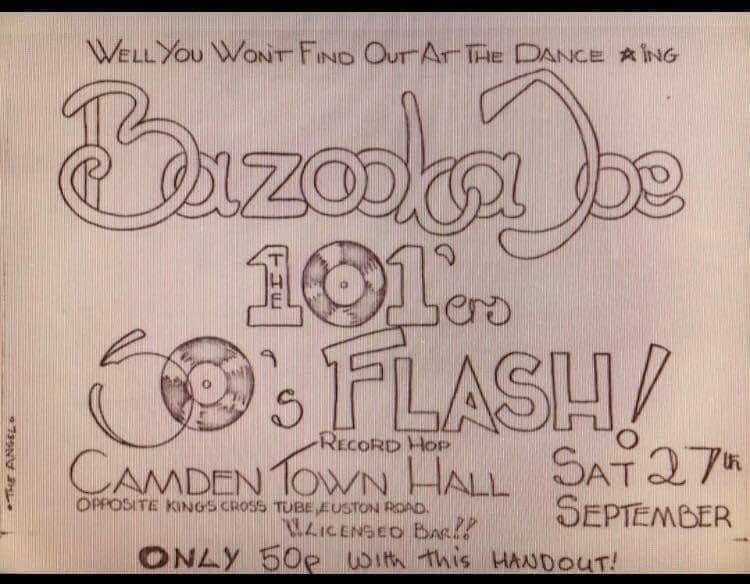 WELL YOU WON'T FIND OUT AT THE DANCE ☆ING
Bazooka Joe
THE 101'ers
60's FLASH!
RECORD HOP
CAMDEN TOWN HALL
OPPOSITE KINGS CROSS TUBE, EUSTON ROAD.
!!LICENSED BAR!!
SAT 27th
SEPTEMBER
ONLY 50p with this HANDOUT!
•THE ANGEL•